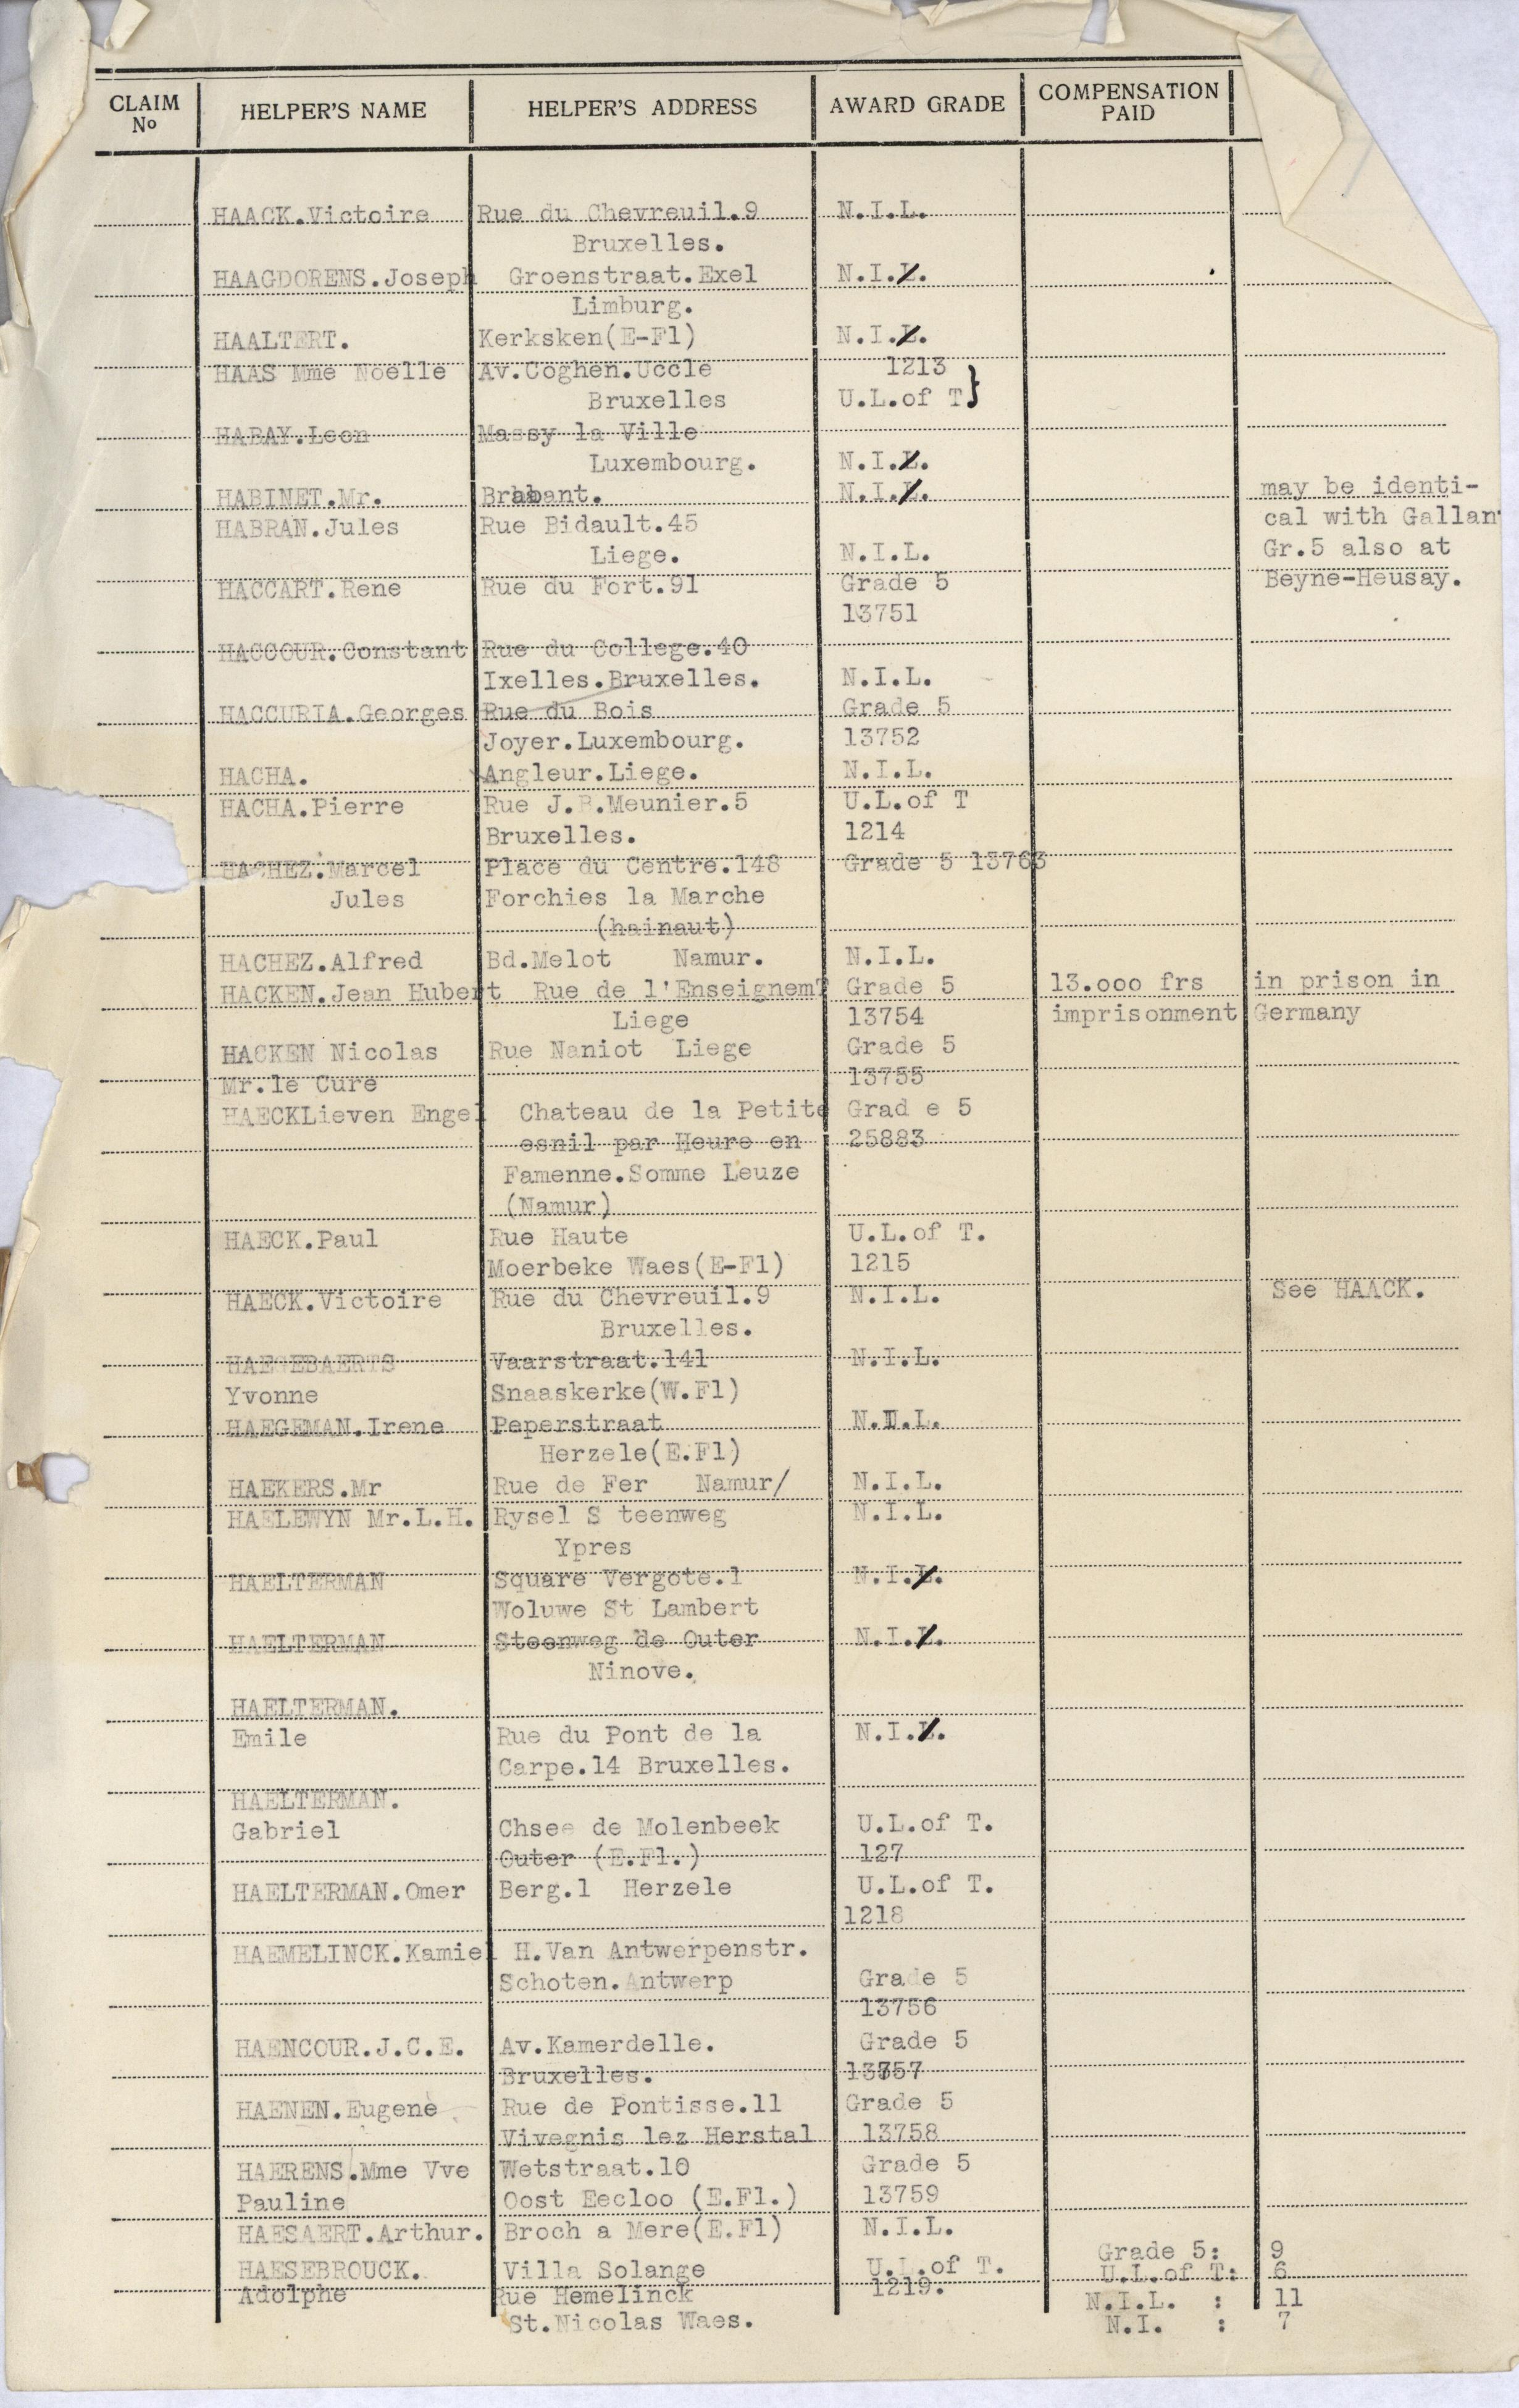 CLAIM No HELPER'S NAME HELPER'S ADDRESS AWARD GRADE COMPENSATION PAID
HAACK.Victoire Rue du Chevreuil.9 N.I.L.
Bruxelles.
HAAGDORENS.Joseph Groenstraat.Exel N.I.L.
Limburg.
HAALTERT. Kerksken(E-Fl) N.I.L.
HAAS Mme Noëlle Av.Coghen.Uccle 1213
Bruxelles U.L.of T}
HABAY.Leon Massy la Ville
Luxembourg. N.I.L.
HABINET.Mr. Brabant. N.I.L. may be identi-
HABRAN.Jules Rue Bidault.45 cal with Gallan
Liege. N.I.L. Gr.5 also at
HACCART.Rene Rue du Fort.91 Grade 5 Beyne-Heusay.
13751
HACCOUR.Constant Rue du College.40
Ixelles.Bruxelles. N.I.L.
HACCURIA.Georges Rue du Bois Grade 5
Joyer.Luxembourg. 13752
HACHA. Angleur.Liege. N.I.L.
HACHA.Pierre Rue J.B.Meunier.5 U.L.of T
Bruxelles. 1214
HACHEZ.Marcel Place du Centre.148 Grade 5 13763
Jules Forchies la Marche
(hainaut)
HACHEZ.Alfred Bd.Melot Namur. N.I.L.
HACKEN.Jean Hubert Rue de l'EnseignemT Grade 5 13.000 frs in prison in
Liege 13754 imprisonment Germany
HACKEN Nicolas Rue Naniot Liege Grade 5
Mr.le Cure 13755
HAECKLieven Engel Chateau de la Petite Grad e 5
esnil par Heure en 25883
Famenne.Somme Leuze
(Namur)
HAECK.Paul Rue Haute U.L.of T.
Moerbeke Waes(E-Fl) 1215
HAECK.Victoire Rue du Chevreuil.9 N.I.L. See HAACK.
Bruxelles.
Vaarstraat.141 N.I.L.
Yvonne Snaaskerke(W.Fl)
HAEGEMAN.Irene Peperstraat N.I.L.
Herzele(E.Fl)
HAEKERS.Mr Rue de Fer Namur/ N.I.L.
HAELEWYN Mr.L.H. Rysel S teenweg N.I.L.
Ypres
HAELTERMAN Square Vergote.1 N.I.L.
Woluwe St Lambert
HAELTERMAN Steenweg de Outer N.I.L.
Ninove.
HAELTERMAN.
Emile Rue du Pont de la N.I.L.
Carpe.14 Bruxelles.
HAELTERMAN.
Gabriel Chsee de Molenbeek U.L.of T.
Outer (E.Fl.) 127
HAELTERMAN.Omer Berg.1 Herzele U.L.of T.
1218
HAEMELINCK.Kamiel H.Van Antwerpenstr.
Schoten.Antwerp Grade 5
13756
HAENCOUR.J.C.E. Av.Kamerdelle. Grade 5
Bruxelles. 13757
HAENEN.Eugene Rue de Pontisse.11 Grade 5
Vivegnis lez Herstal 13758
HAERENS.Mme Vve Wetstraat.10 Grade 5
Pauline Oost Eecloo (E.Fl.) 13759
HAESAERT.Arthur. Broch a Mere(E.Fl) N.I.L.
Grade 5: 9
HAESEBROUCK. Villa Solange U.L.of T. U.L.of T: 6
Adolphe Rue Hemelinck 1219. N.I.L. : 11
St.Nicolas Waes. N.I. : 7